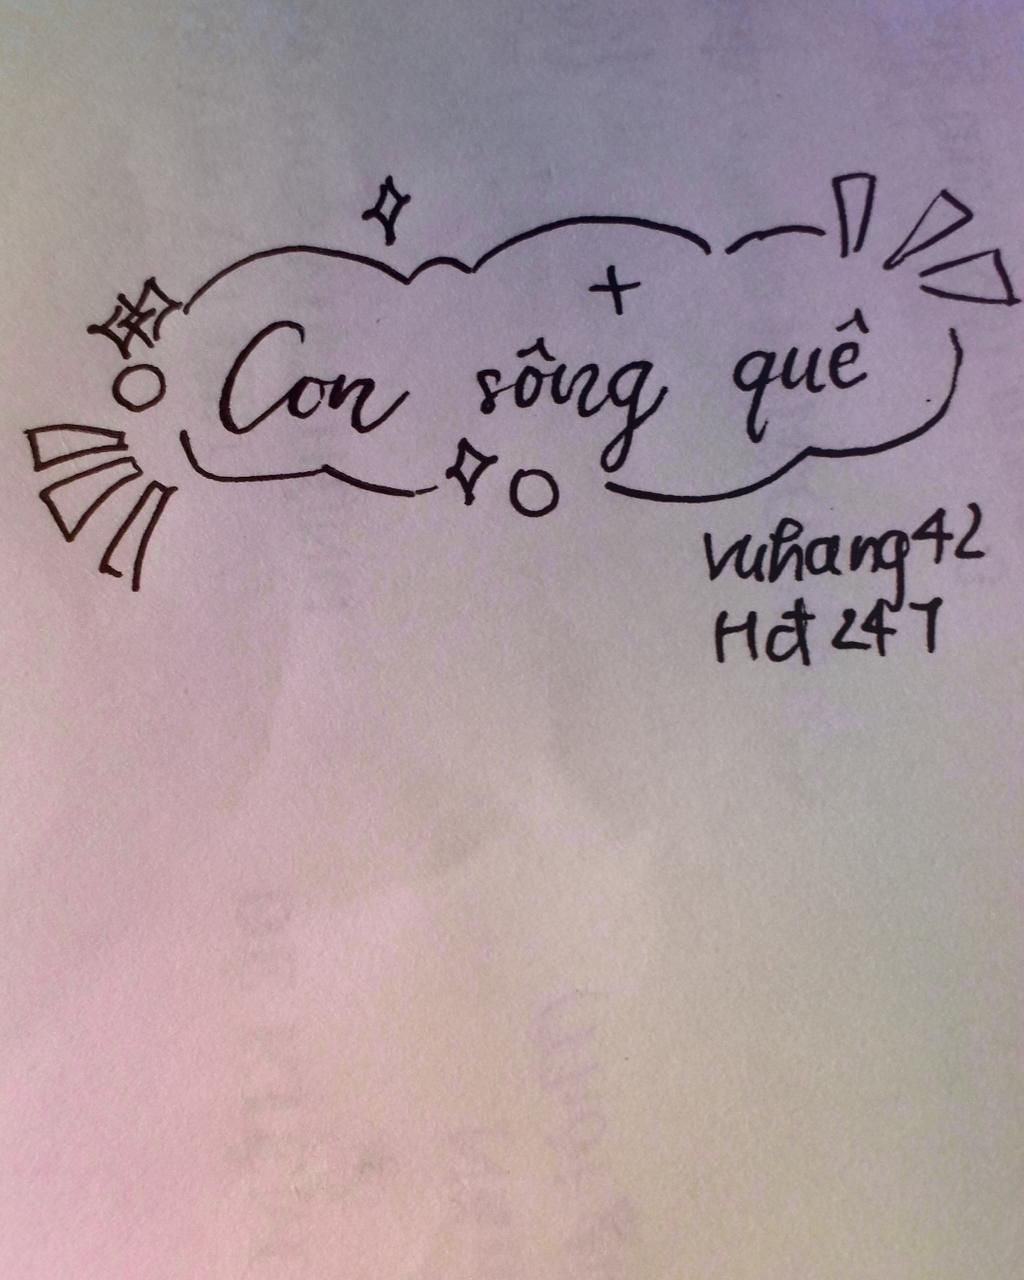 Con sông quê
vuhang42
Hđ 247